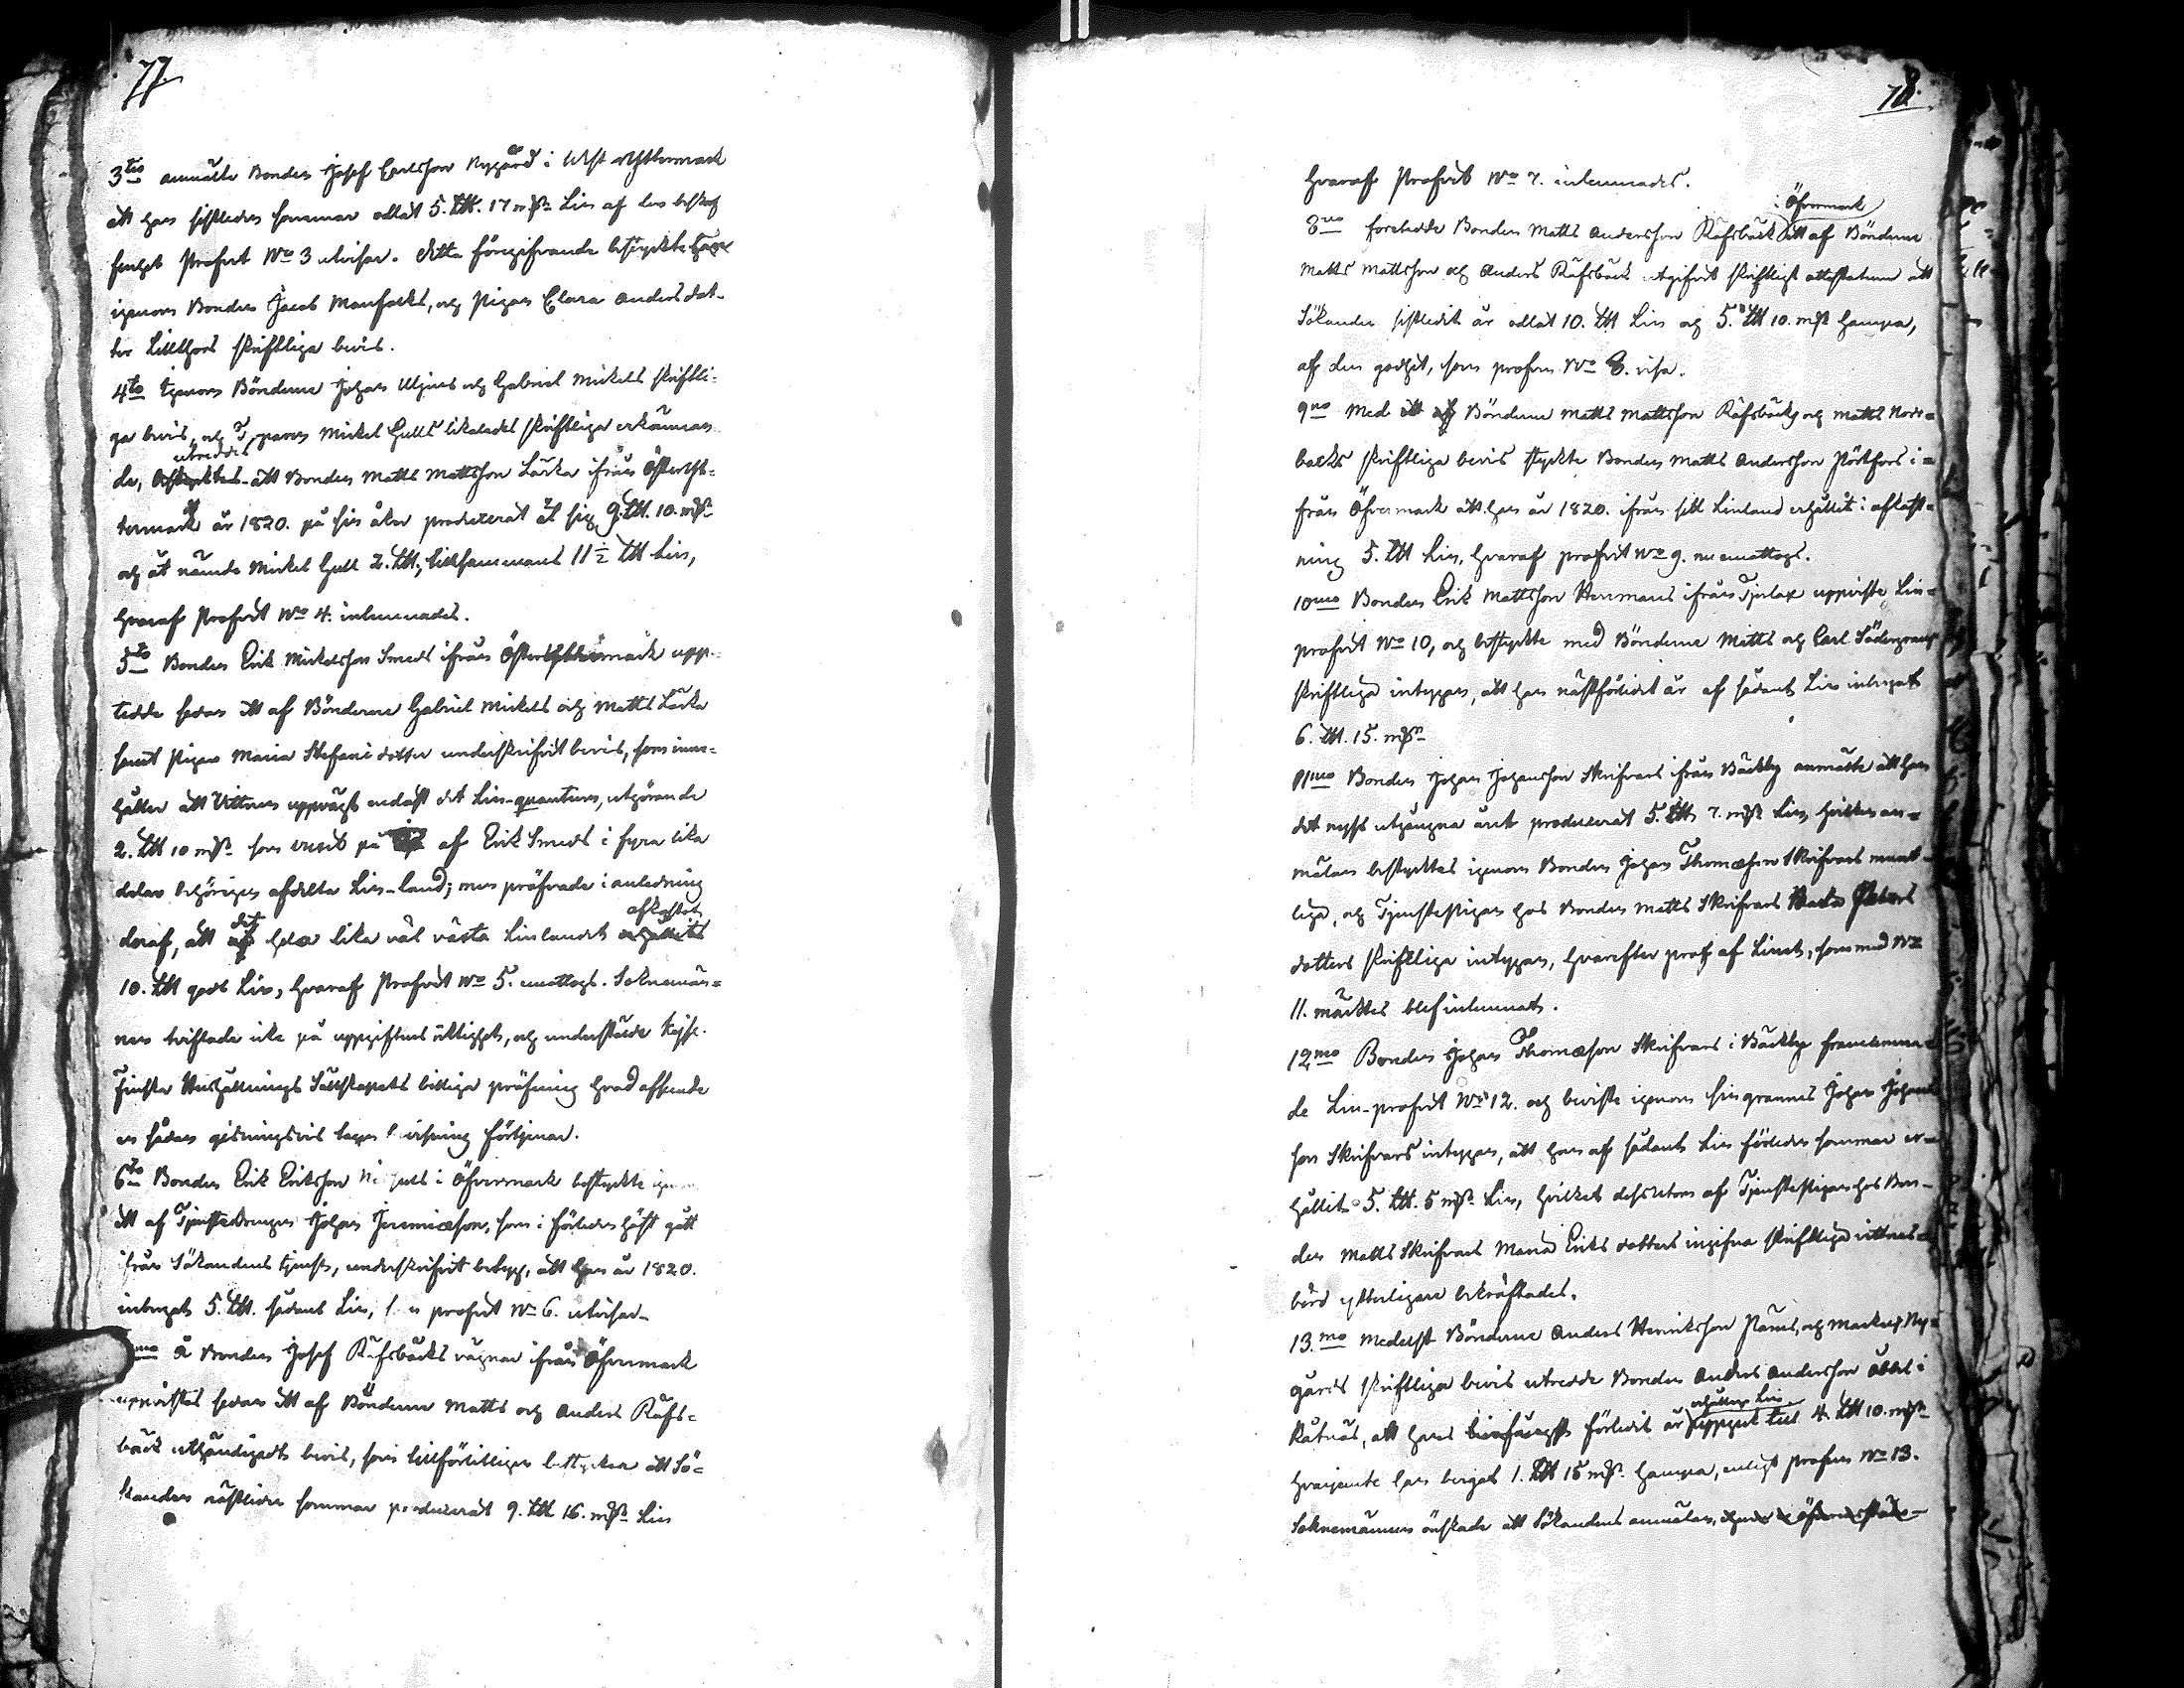 77.
3tio anmälte Bonden Josef Carlsson Nygård i West yttermark
att han sistledne sommar odlat 5. LH. 17 mß Lin af den beskaf
fenhet Profvet No 3 utvisar. Detta föregifvande bestyrkte han
igenom Bonden Jacob Manfolks, och Pigan Clara Andersdot-
ter Lillthors skriftliga bevis.
4to Igenom Bönderne Johan Utjens och Gabriel Mickels skriftli-
ga bevis, och Mickel Gulls likaledes skriftliga erkännan
utreddes
de, att Bonden Matts Mattsson Lärka ifrån Österyt-
termark år 1820. på sin åker producerat åt sig 9. LH. 10. mß
och åt nämde Mickel Gull 2. LH; tillsammans 11 1/2 LH Lin,
hvaraf Profvet No 4. inlemnades.
5to Bonden Erik Mickelsson Smeds ifrån Österyttermark upp-
tedde sedan ett af Bönderne Gabriel Mickels och Matts Lärka
samt Pigan Maria Stefansdotter underskrifvit bevis, som inne-
håller att Vittnen uppvägt endast det Lin-quantum, utgörande
2. LH 10 mß som vuxit på af Erik Smeds i fyra lika
delar behörigen afdelta Lin-land; men pröfvade i anledning
afkastat
det
deraf, att hela lika väl växta Linlandet erhållits
10. LH godt Lin, hvaraf Profvet No 5. emottogs. Soknemän-
nen tviflade icke på uppgiftens riktighet, och understälde Kejs.
Finska Hushållnings Sällskapets billiga pröfning hvad afseende
en sådan gissningsvis tagen förtjenar.
6to Bonden Erik Eriksson i Öfvermark bestyrkte igenom
ett af Tjenstedrengen Johan Jeremiæson, som i förleden höst gått
ifrån Sökandens tjenst, underskrifvit betyg, att han år 1820.
inbergat 5. LH. sådant Lin, som profvet No 6. utvisar.
mo å Bonden Josef Räfsbäcks vägnar ifrån Öfvermark
uppvistes sedan ett af Bönderne Matts och Anders Räfs-
bäck uthändigadt bevis, som tillförlitligen bestyrker att Sö-
kanden nästledne sommar producerat 9. LH 16. mß Lin
78.
hvaraf Profvet No 7. inlemnades.
i Öfvermark
8vo företedde Bonden Matts Andersson Räfsbäck ett af Bönderne
Matts Mattsson och Anders Räfsbäck utgifvit skriftligt attestatum att
Sökanden sistledit år odlat 10. LH Lin och 5. LH 10. mß Hampa,
af den godhet, som profven No 8. visa.
9no Med ett af Bönderne Matts Mattsson Räfsbäck, och Matts Norr-
backs skriftliga bevis styrkte Bonden Matts Andersson Pörtfors i-
från Öfvermark att han år 1820. ifrån sitt Linland erhållit i afkast-
ning 5. LH Lin, hvaraf profvet No 9. nu emottogs.
10mo Bonden Erik Mattsson Hermans ifrån Tjerlax uppviste Lin-
profvet No 10, och bestyrkte med Bönderne Matts och Carl Södergrans
skriftliga intygan, att han nästförledit år af sådant Lin inbergat
6. LH. 15. mß
11mo Bonden Johan Johansson Skrifvars ifrån Bäckby anmälte att han
det nyss utgångna året producerat 5. LH 7. mß Lin, hvilken an-
mälan bestyrktes igenom Bonden Johan Thomæson Skrifvars munt-
liga, och Tjenstepigan hos Bonden Matts Skrifvars
dotters skriftliga intygan, hvarefter prof af Linet, som med No
11. märktes blef inlemnat.
12mo Bonden Johan Thomæson Skrifvars i Bäckby framlemna-
de Lin-profvet No 12. och beviste igenom sin grannes Johan Johans
son Skrifvars intygan, att han af sådant Lin förleden sommar er-
hållit 5. LH. 5 mß Lin, hvilket dessutom af Tjenstepigan hos Bon-
den Matts Skrifvars Maria Eriksdotters ingifna skriftliga vittnes-
börd ytterligare bekräftades.
13.mo Medelst Bönderne Anders Henriksson Påmes, och Markus Ny-
gårds skriftliga bevis utredde Bonden Anders Andersson Åbbs i
erhållen Lin
Kåtnäs, att hans förledit år uppgått till 4. LH 10. mß
hvarjemte han bergat 1. LH 15 mß. Hampa, enligt profven No 13.
Soknemännen önskade att Sökandens anmälan,